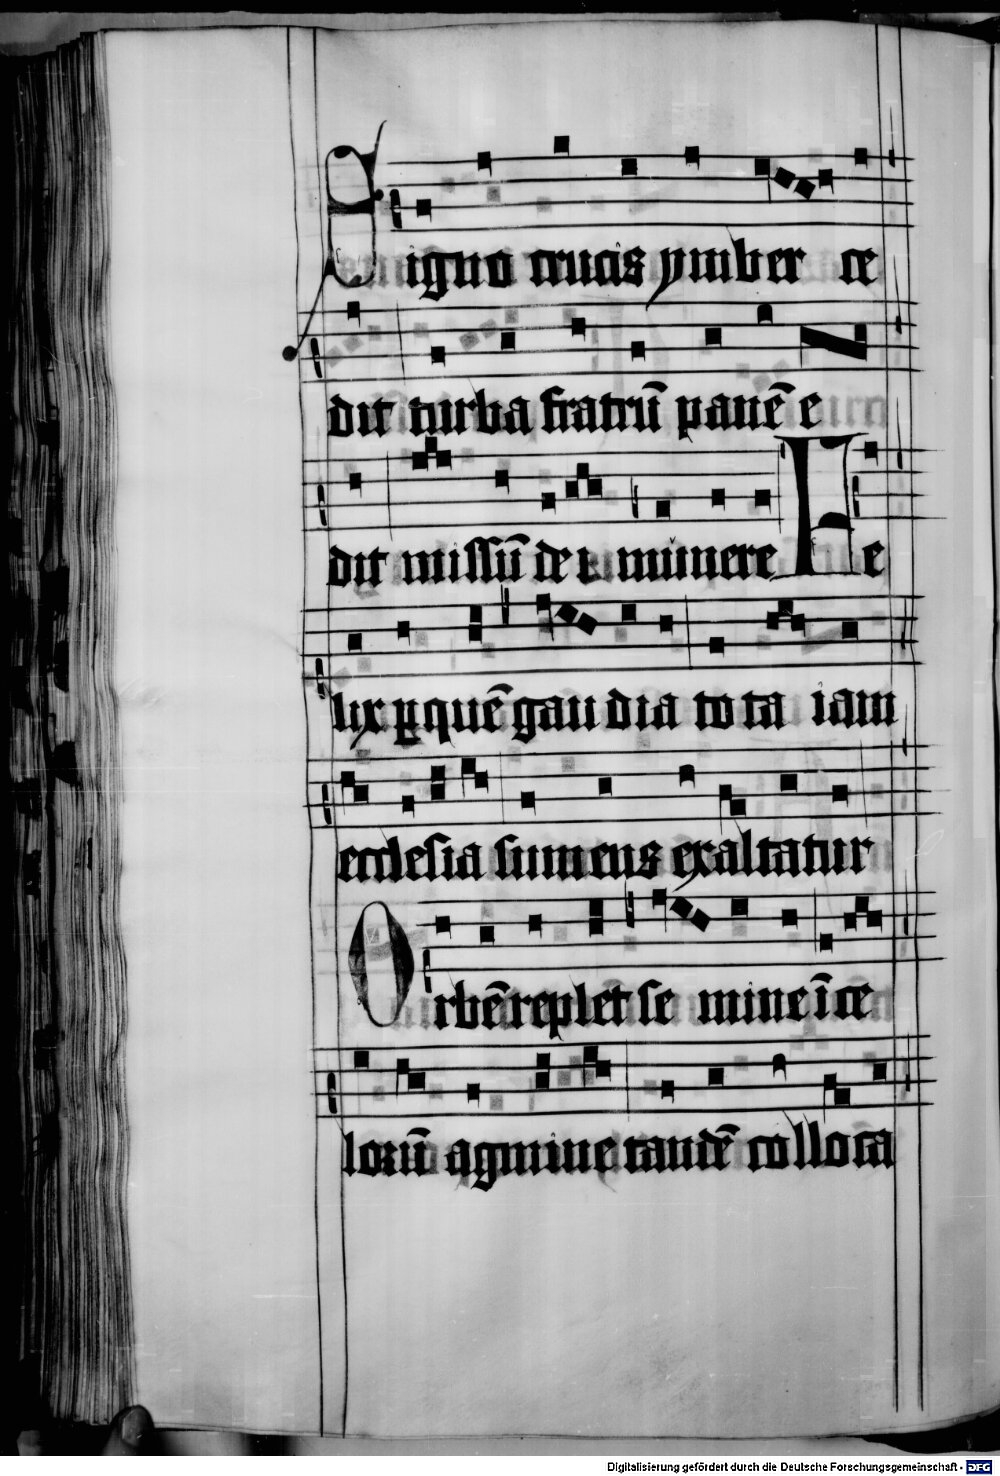 Signo crucis ymber ce
dit turba fratrū panē e
dit missū dei munere Fe
lix p̱ quē gau dia to ta iam
ecclesia summens exaltatur
Orbē replet se mine ī ce
lorū agmine tandē collota
Digitalisierung gefördert durch die Deutsche Forschungsgemeinschaft - DFG